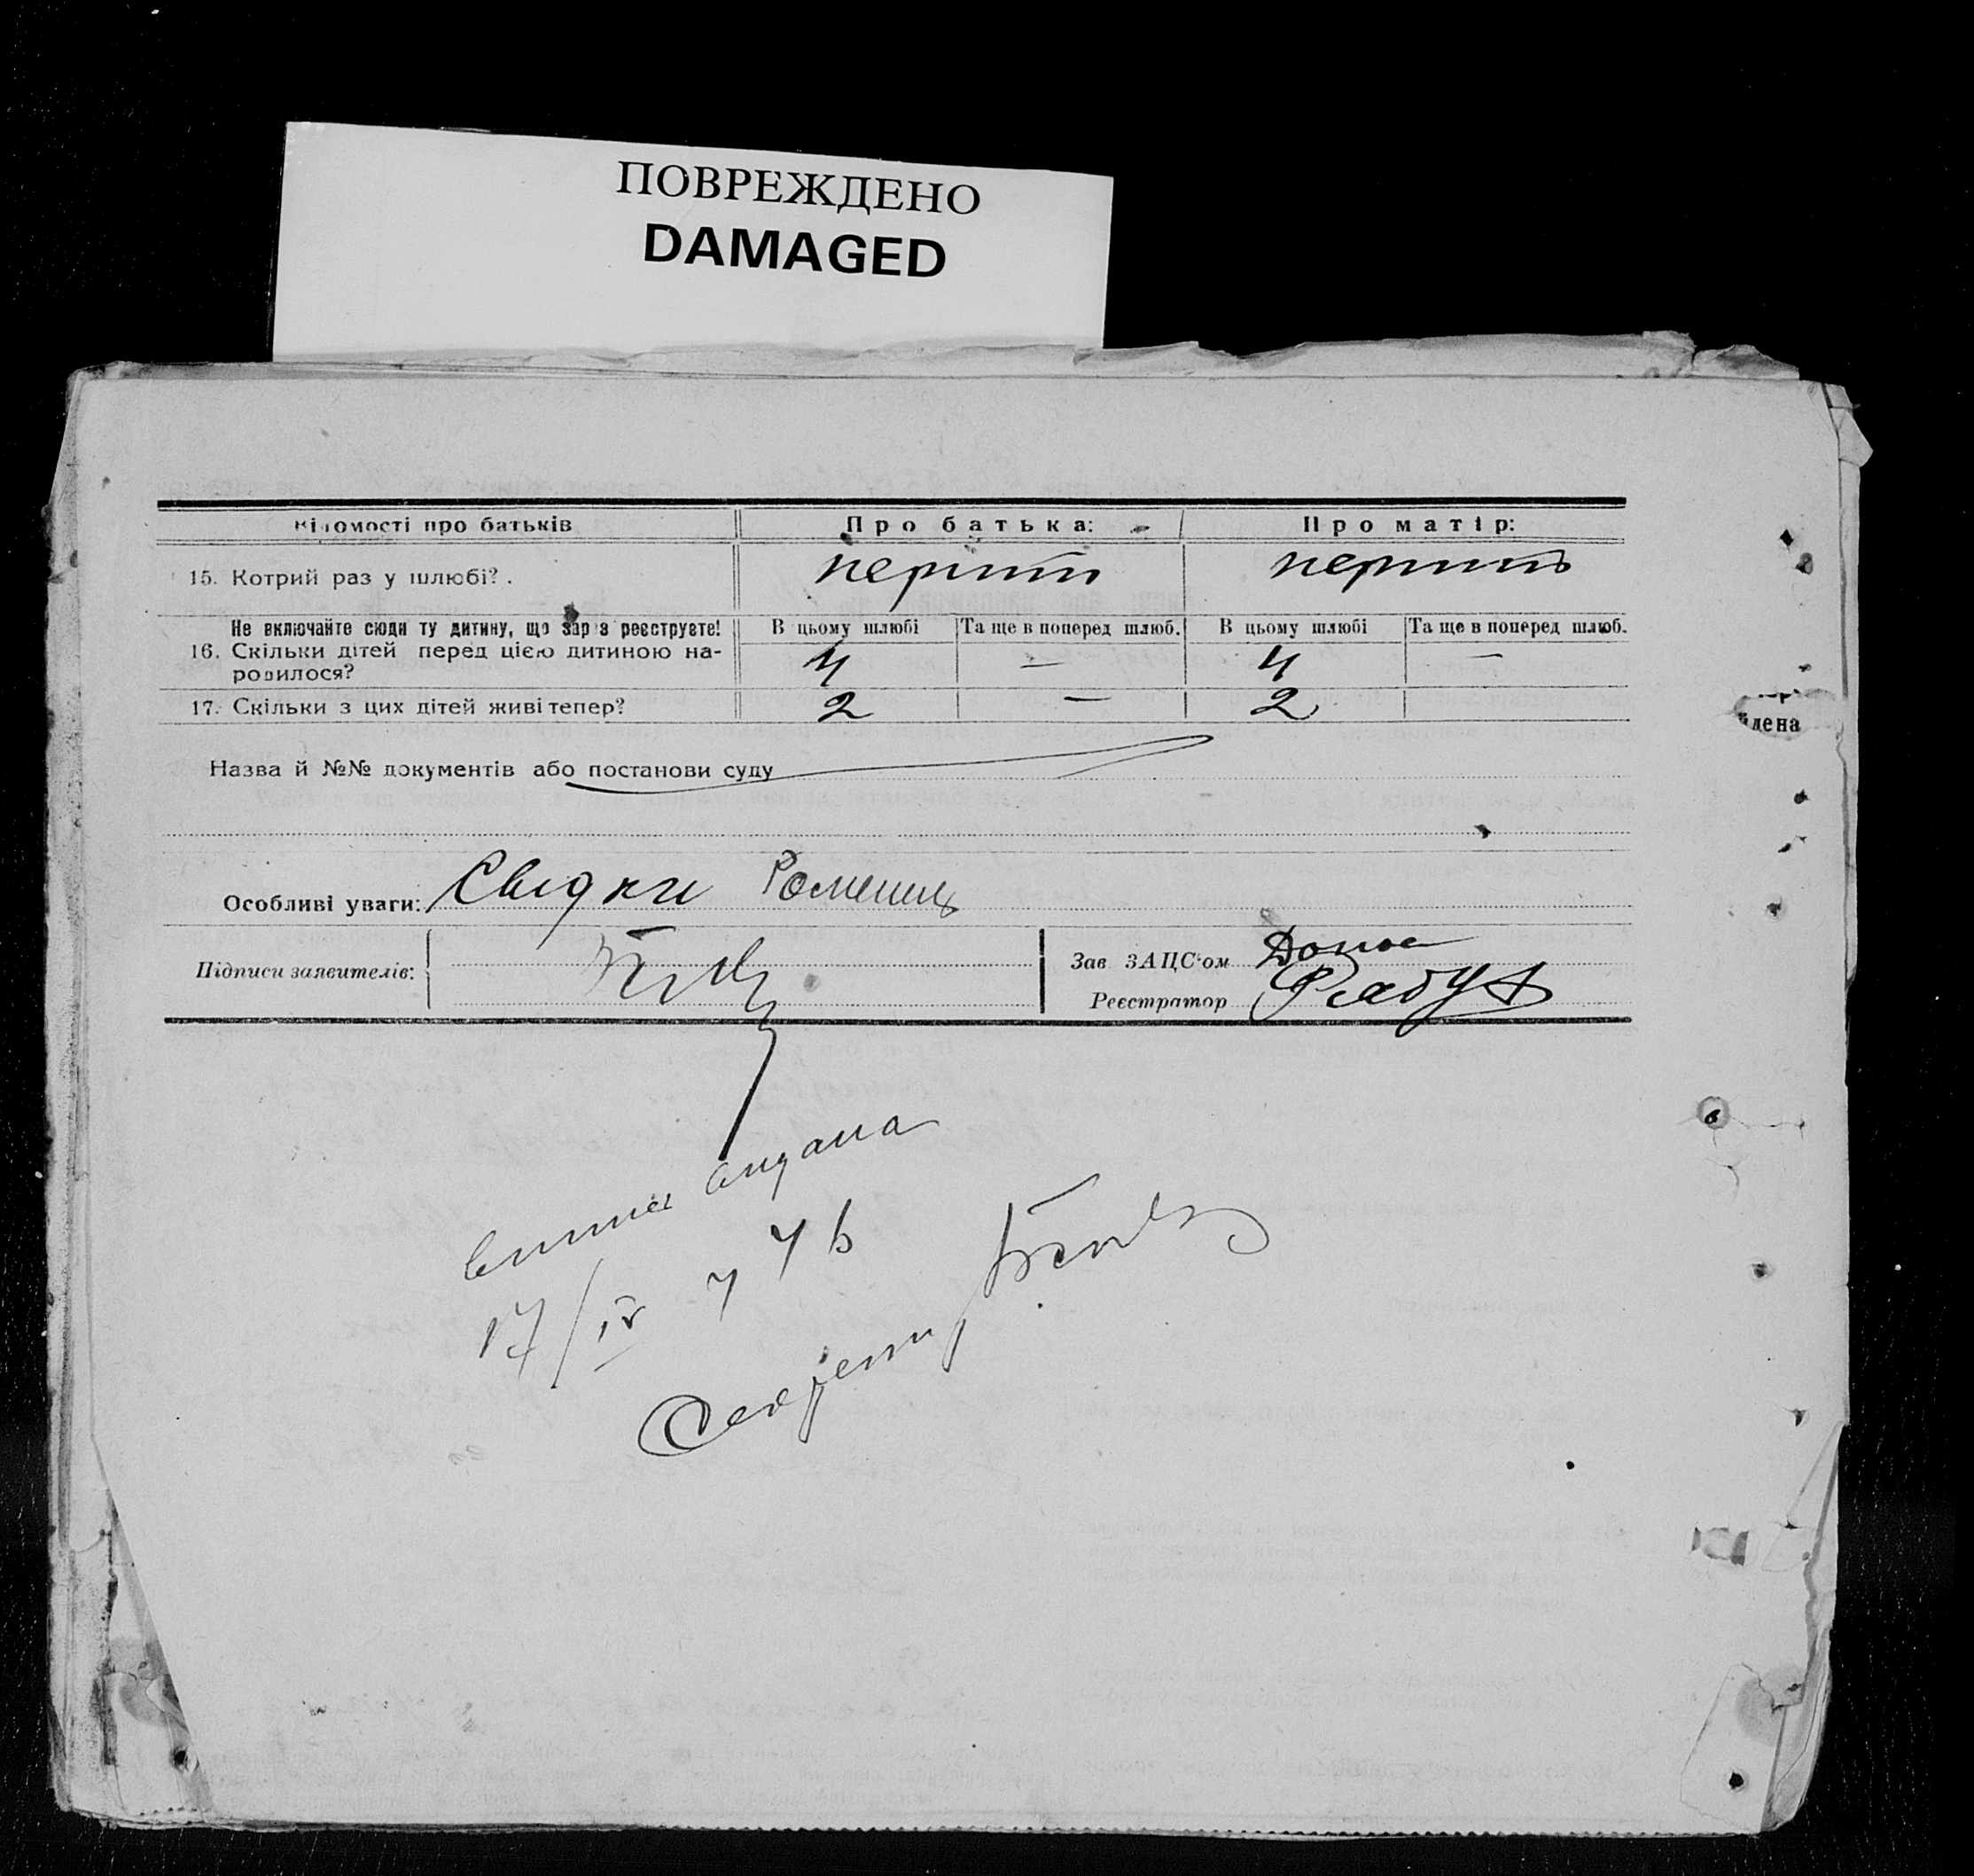 ПОВРЕЖДЕНО
DAMAGED
Відомості про батьків Про батька: Про матір:
15. Котрий раз у шлюбі? . перший перший
Не включайте сюди ту дитину, що зараз реєструєте! В цьому шлюбі Та ще в поперед шлюб. В цьому шлюбі Та ще в поперед шлюб.
16. Скільки дітей перед цією дитиною на-
родилося? 4 — 4 —
17. Скільки з цих дітей живі тепер? 2 — 2
йдена
Назва й №№ документів або постанови суду
Особливі уваги: Свідки Роменець
Підписи заявителів:
Зав ЗАЦС'ом
Реєстратор
видана
17/IV
Секретар